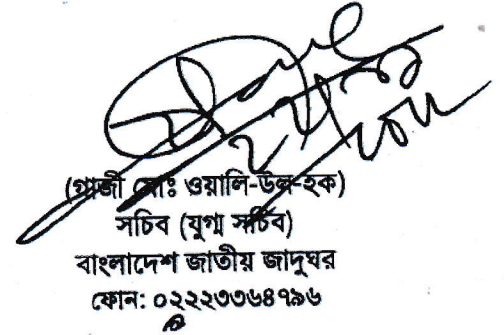 (গাজী মোঃ ওয়ালি-উল-হক)
সচিব (যুগ্ম সচিব)
বাংলাদেশ জাতীয় জাদুঘর
ফোন: ০২২২৩৩৬৪৭৯৬